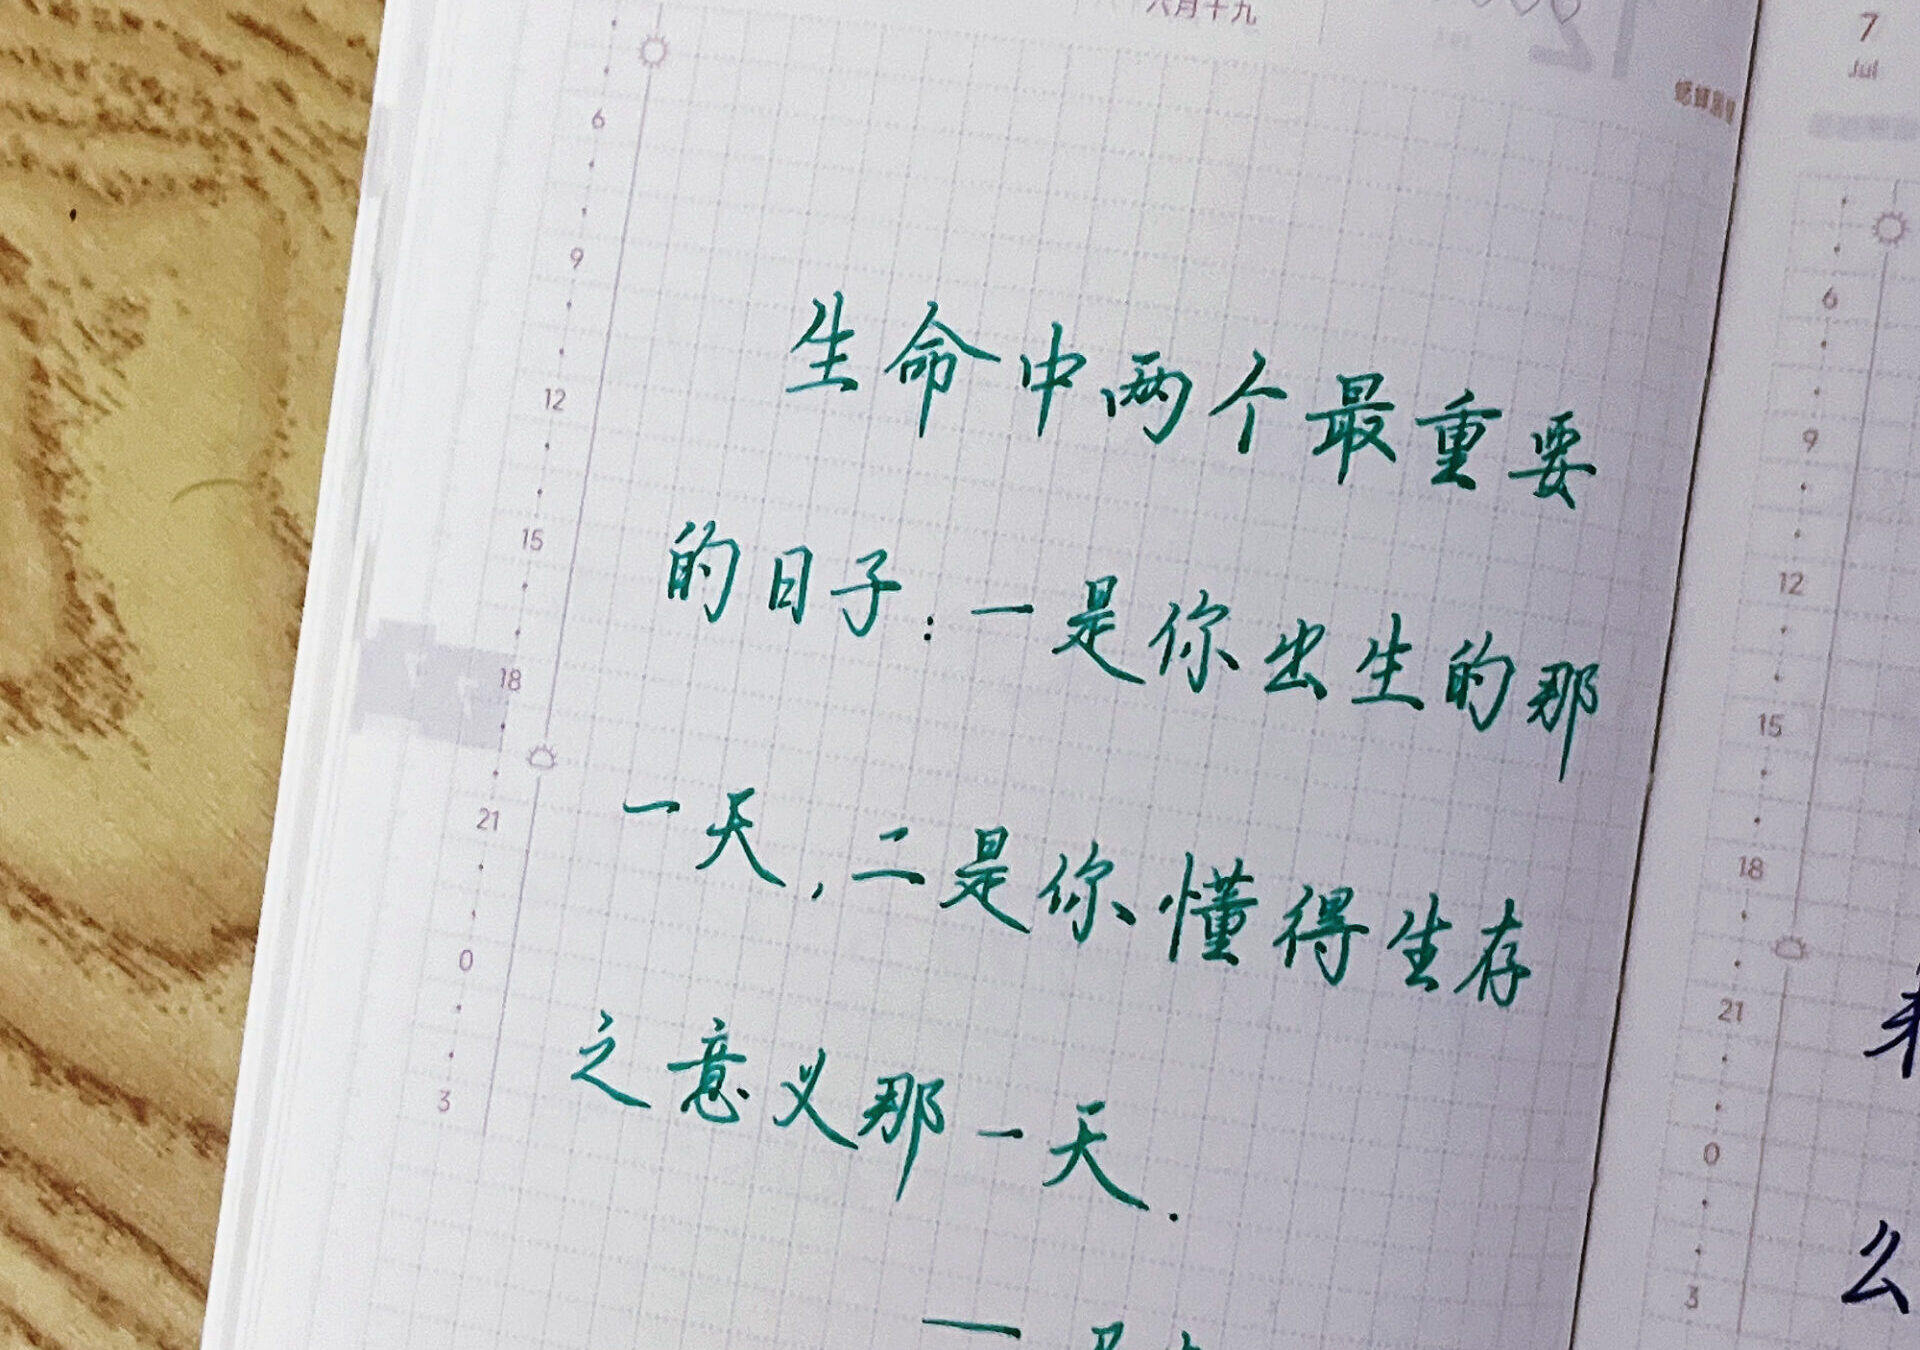 六月十九
6
9
12
15
18
21
0
3
生命中两个最重要
的日子：一是你出生的那
一天，二是你懂得生存
之意义那一天.
7
Jul
6
9
12
15
18
21
0
3
么